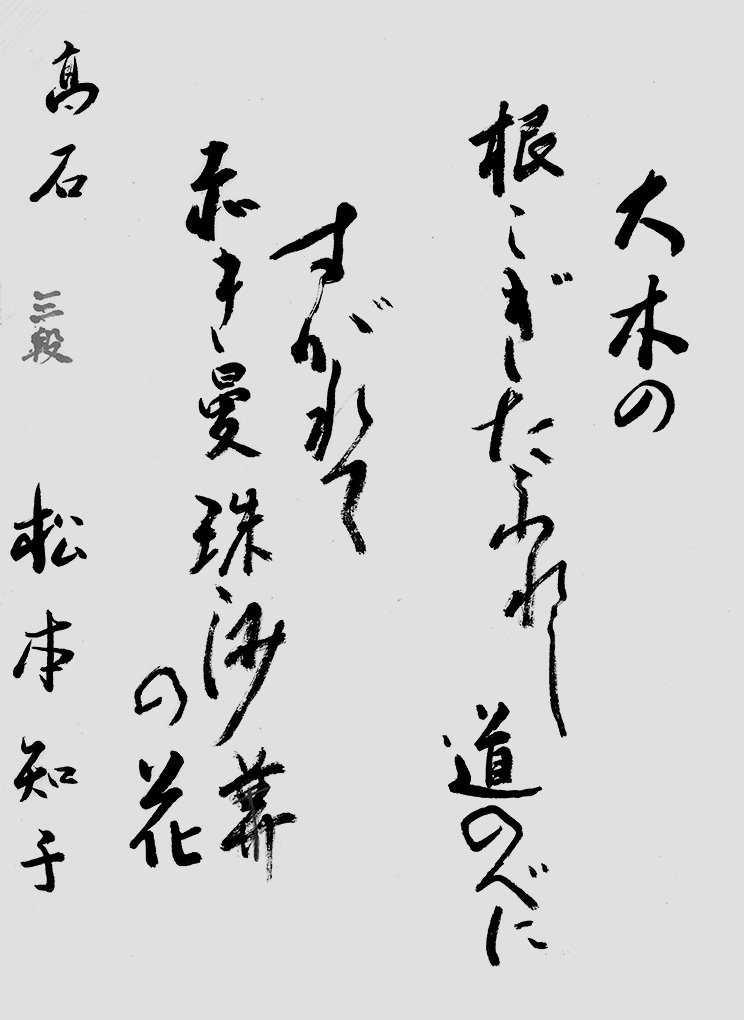 大木の
根こぎしたふれし道のべに
すがれて
赤き曼珠沙華
の花
高石 三段 松本知子